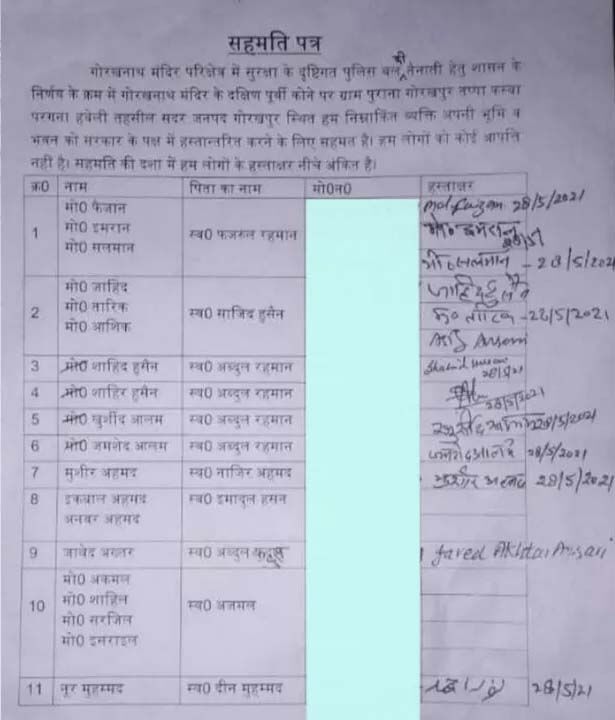 सहमति पत्र
गोरखनाथ मंदिर परिक्षेत्र में सुरक्षा के दृष्टिगत पुलिस बल की तैनाती हेतु शासन के
निर्णय के क्रम में गोरखनाथ मंदिर के दक्षिण पूर्वी कोने पर ग्राम पुराना गोरखपुर तप्पा कस्बा
परगना हवेली तहसील सदर जनपद गोरखपुर स्थित हम निम्नांकित व्यक्ति अपनी भूमि व
भवन को सरकार के पक्ष में हस्तान्तरित करने के लिए सहमत है। हम लोगों को कोई आपत्ति
नहीं है। सहमति की दशा में हम लोगों के हस्ताक्षर नीचे अंकित है।
क्र0 नाम पिता का नाम मो0न0 हस्ताक्षर
मो0 फैजान Md. Faizan 28/5/2021
1 मो0 इमरान स्व0 फजरुल रहमान मो0 इमरान 28/5/
मो0 सलमान मो0 सलमान - 28/5/2021
मो0 जाहिद जाहिद हुसैन
2 मो0 तारिक स्व0 साजिद हुसैन मो0 तारिक - 28/5/2021
मो0 आशिक
3 मो0 शाहिद हुसैन स्व0 अब्दुल रहमान Shahid 28/5/21
4 मो0 शाहिर हुसैन स्व0 अब्दुल रहमान 28/5/2021
5 मो0 खुर्शीद आलम स्व0 अब्दुल रहमान खुर्शीद आलम 28/5/2021
6 मो0 जमशेद आलम स्व0 अब्दुल रहमान जमशेद आलम 28/5/2021
7 मुशीर अहमद स्व0 नाजिर अहमद मुशीर अहमद 28/5/2021
8 इकबाल अहमद स्व0 इमादुल हसन
अनवर अहमद
9 जावेद अख्तर स्व0 अब्दुल Javed Akhtar Ansari
मो0 अकमल
10 मो0 शाहिल स्व0 अजमल
मो0 सरजिल
मो0 इसराइल
11 नूर मुहम्मद स्व0 दीन मुहम्मद 28/5/21